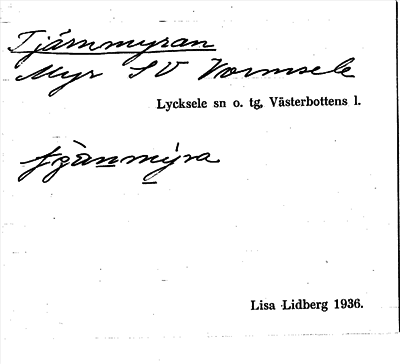 Tjärnmyran
Myr SV Vormsele
Lycksele sn o. tg, Västerbottens l.
Lisa Lidberg 1936.